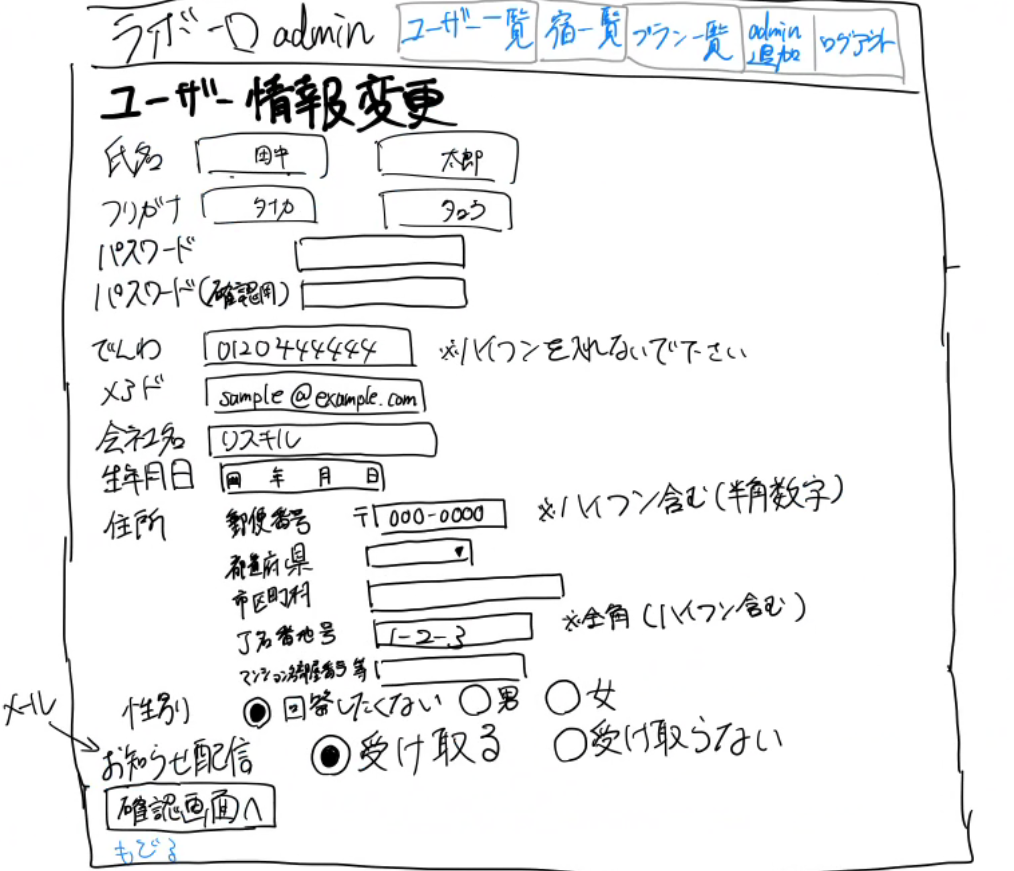 ライボーロ admin ユーザー一覧 宿一覧 プラン一覧 admin追加 ログアウト
ユーザー情報変更
氏名 田中 太郎
フリガナ タナカ タロウ
パスワード
パスワード(確認用)
でんわ 0120444444 ※ハイフンを入れないで下さい
メアド sample@example.com
会社名 リスキル
生年月日 年 月 日
住所 郵便番号 〒 000-0000 ※ハイフン含む(半角数字)
都道府県
市区町村
丁名番地号 1-2-3 ※全角(ハイフン含む)
マンション名部屋番号等
性別 回答したくない 男 女
メール
お知らせ配信 受け取る 受け取らない
確認画面へ
もどる